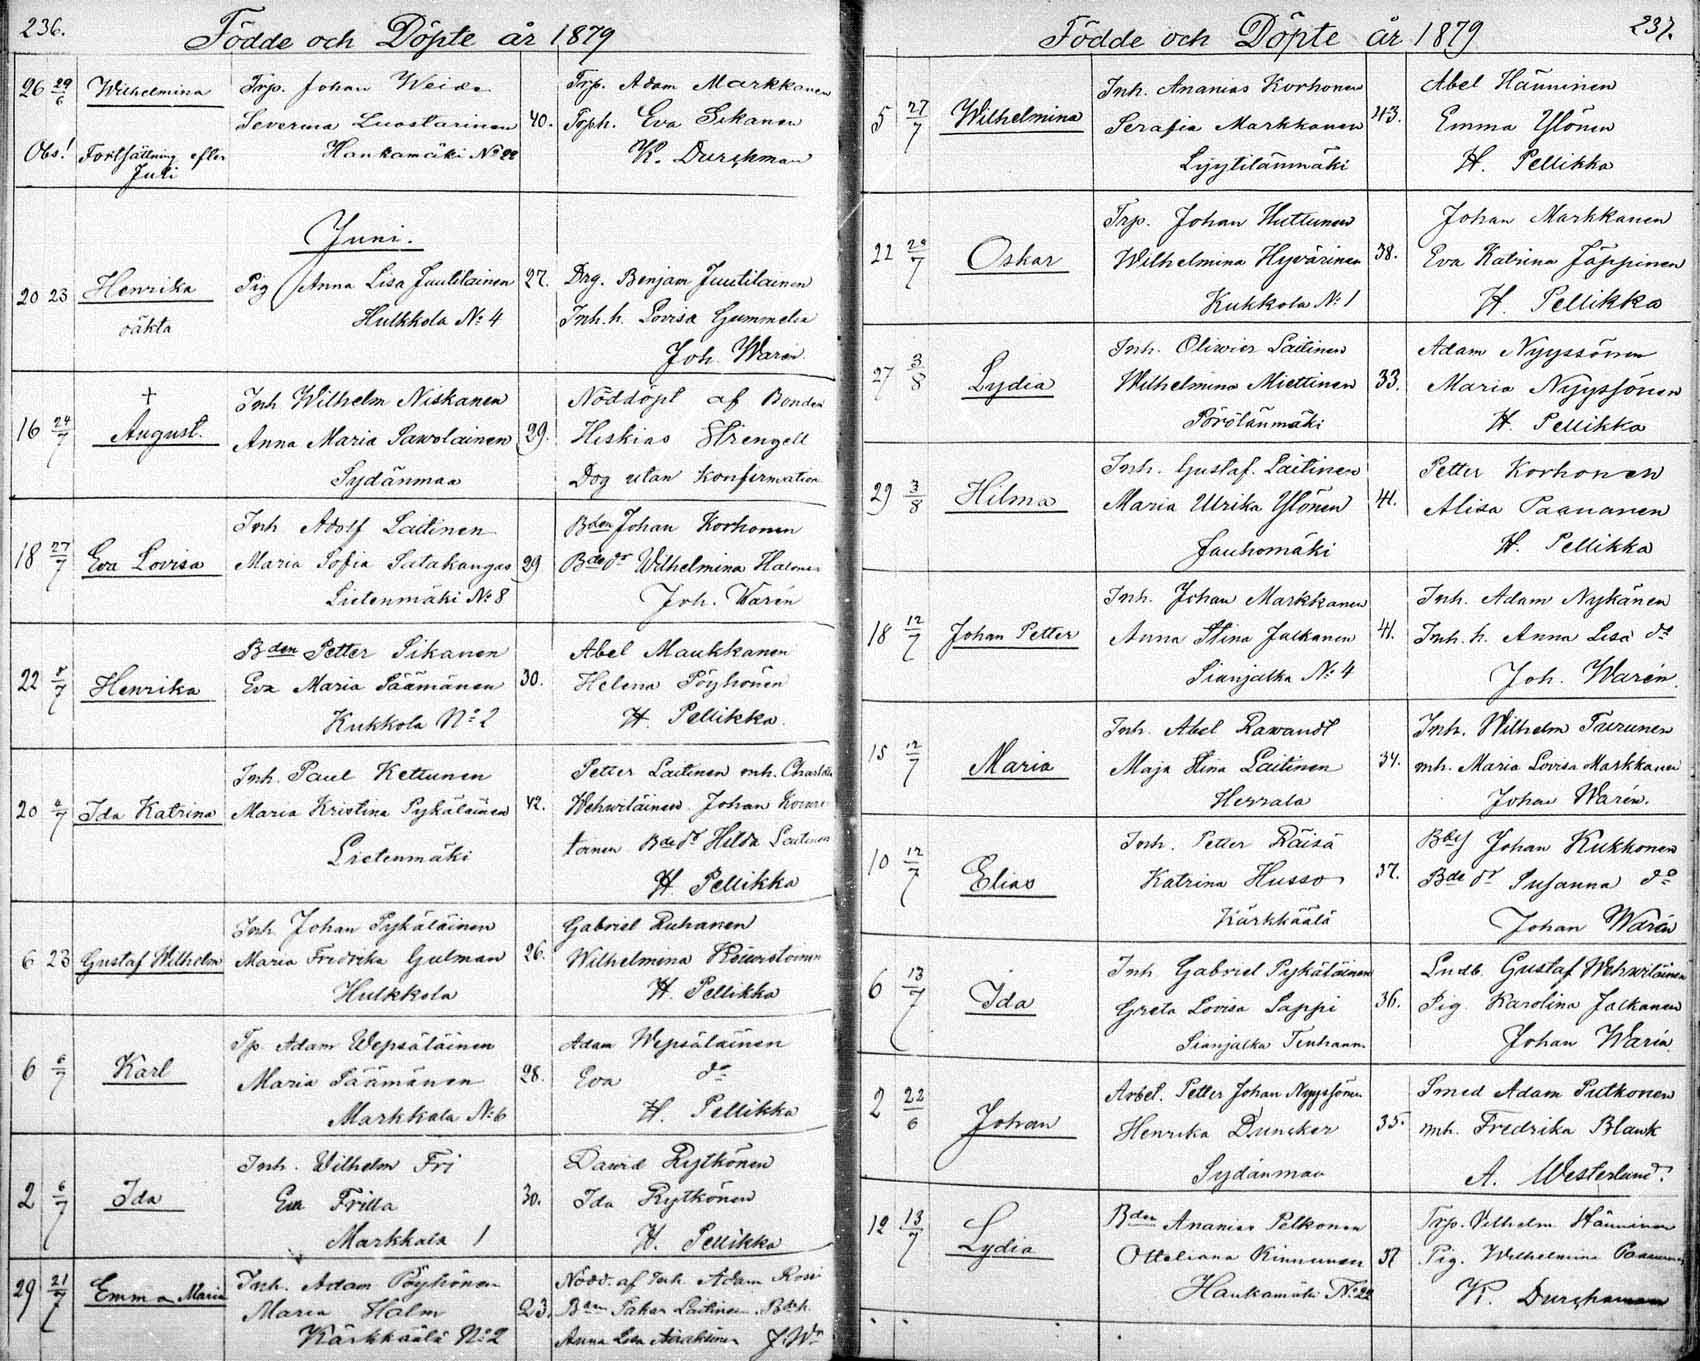 236.
Födde och Döpte år 1879
26 29/6 Wilhelmina Trp. Johan Weide Trp. Adam Markkanen
Severina Luostarinen 40. Toph. Eva Sikanen
Obs! Fortsättning efter Juli Haukamäki No 22 K. Durchman
Juni.
20 23 Henrika Pig Anna Lisa Juutilainen 27. Drg. Benjam Juutilainen
oäkta Hulkkola No 4 Inh. h. Lovisa Gummelin
Joh. Warén.
+ Inh Wilhelm Niskanen Nöddöpt af Bonden
16 24/7 August. Anna Maria Sawolainen 29. Hiskias Strengell
Sydänmaa Dog utan konfirmation
Inh Adolf Laitinen Bden Johan Korhonen
18 27/7 Eva Lovisa Maria Sofia Satakangas 29 Bde dr Wilhelmina Halonen
Lietenmäki No 8 Joh. Warén
Bden Petter Sikanen Abel Maukkanen
22 /7 Henrika Eva Maria Säämänen 30. Helena Pöyhönen
Kukkola No 2 H. Pellikka.
Inh. Paul Kettunen Petter Laitinen mh. Charlotta
20 6/7 Ida Katrina Maria Kristina Pykäläinen 42. Wehwiläinen Johan
Lietenmäki toinen Bde dr Hilda Laitinen
H. Pellikka
Inh. Johan Pykäläinen Gabriel Ruhanen
6 23 Gustaf Wilhelm Maria Fredrika Gulman 26. Wilhelmina Kouvistoinen
Hulkkola H. Pellikka
Tp. Adam Wepsäläinen Adam Wepsäläinen
6 6/7 Karl Maria Säämänen 28. Eva do
Markkala No 6 H. Pellikka
Inh. Wilhelm Fri Dawid Rytkönen
2 6/7 Ida Eva Frilla 30. Ida Rytkönen
Markkala 1 H. Pellikka
Inh. Adam Pöyhönen Nödd. af Inh. Adam Rossi
29 21/7 Emma Maria Maria Halm 23. Laitinen
Kärkkäälä No 2 Anna Lisa J. Wn
237.
Födde och Döpte år 1879
Inh. Ananias Korhonen Abel Hänninen
5 27/7 Wilhelmina Serafia Markkanen 43. Emma Ylönen
Lyytilänmäki H. Pellikka
Trp. Johan Huttunen Johan Markkanen
22 29/7 Oskar Wilhelmina Hyvärinen 38. Eva Katrina Jäppinen
Kukkola No 1 H. Pellikka
Inh. Oliwier Laitinen Adam Nyyssönen
27 3/8 Lydia Wilhelmina Miettinen 33. Maria Nyyssönen
Pörölänmäki H. Pellikka
Inh. Gustaf. Laitinen Petter Korhonen
29 3/8 Hilma Maria Ulrika Ylönen 41. Alisa Paananen
Jauhomäki H. Pellikka
Inh. Johan Markkanen Inh. Adam Nykänen
18 12/7 Johan Petter Anna Stina Jalkanen 41. Inh. h. Anna Lisa do
Sianjalka No 4 Joh. Warén.
Inh. Abel Rawandt Inh. Wilhelm Turunen
15 12/7 Maria Maja Stina Laitinen 34. mh. Maria Lovisa Markkanen
Herrala Johan Warén.
Inh. Petter Räisä Johan Kukkonen
10 12/7 Elias Katrina Husso 37. Bde dr Susanna do
Kärkkäälä Johan Warén
Inh Gabriel Pykäläinen Lndb. Gustaf Wehwiläinen
6 13/7 Ida Greta Lovisa Sappi 36. Pig. Karolina Jalkanen
Sianjalka Tenhunn. Johan Warén.
Arbet. Petter Johan Nyyssönen Smed Adam Putkonen
2 22/6 Johan Henrika Duncker 35. mh. Fredrika Blank
Sydänmaa A. Westerlund.
Bden Ananias Pelkonen Trp. Vilhelm Hänninen
12 13/7 Lydia Otteliana Kinnunen 37 Pig. Wilhelmina Paananen
Haukamäki No 22 K. Durchman